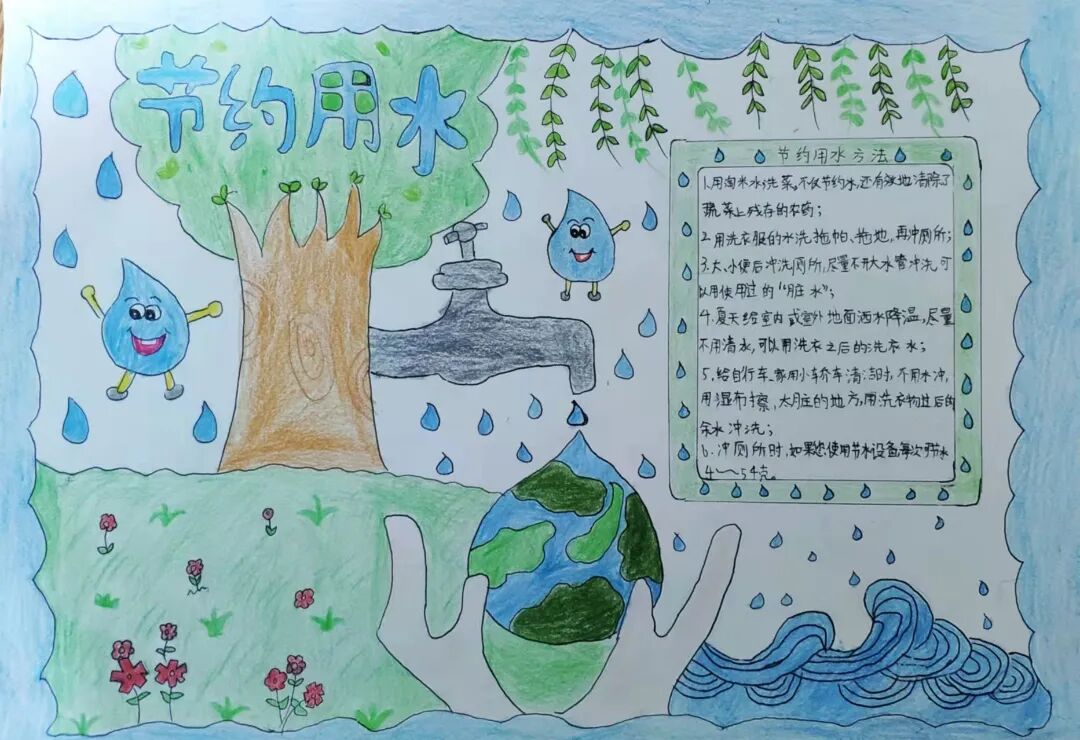 节约用水
节约用水方法
1.用淘米水洗菜。不仅节约水,还有效地清除了
蔬菜上残存的农药;
2.用洗衣服的水洗拖帕、拖地,再冲厕所;
3.大、小便后冲洗厕所,尽量不开大水管冲洗,可
以用使用过的“脏水”;
4.夏天给室内或室外地面洒水降温,尽量
不用清水,可以用洗衣之后的洗衣水;
5.给自行车、家用小车清洁时,不用水冲,
用湿布擦,太脏的地方,用洗衣物过后的
余水冲洗;
6.冲厕所时,如果您使用节水设备每次可节水
4~54克。